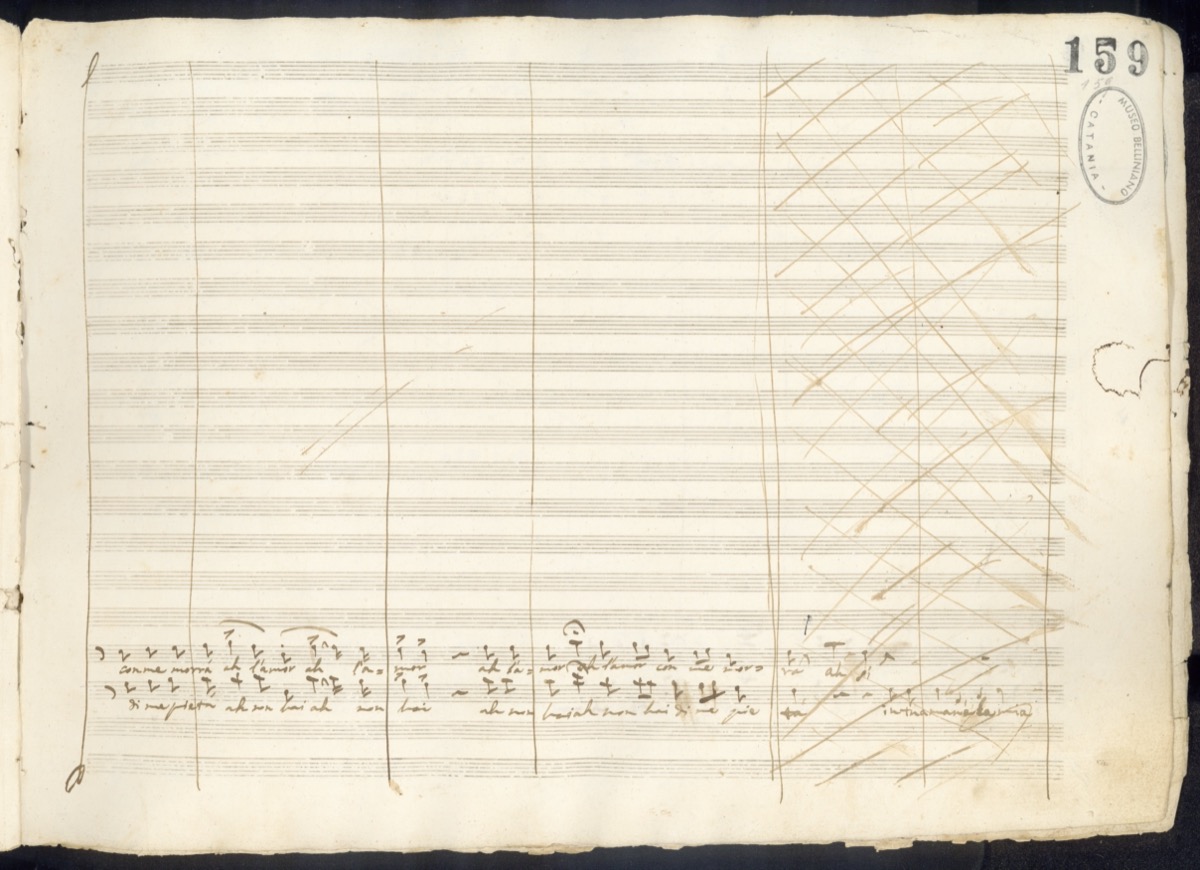 159
MUSEO BELLINIANO
- CATANIA -
con me morrà ah l'amor ah l'a= mor ah l'a= mor ah l'amor con me mor= rà ah si
di me pietà ah non hai ah non hai ah non hai ah non hai di me pie tà